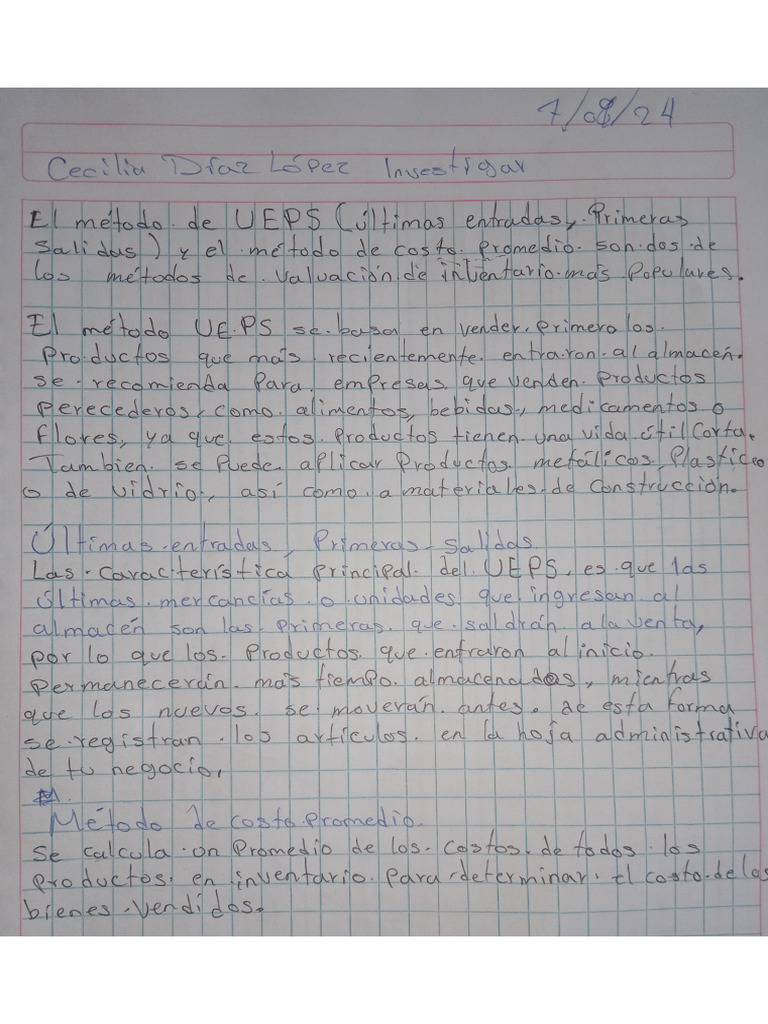 7/08/24
Cecilia Díaz López Investigar
El método de UEPS (últimas entradas, Primeras
salidas) y el método de costo promedio son dos de
los métodos de valuación de inventario más Populares.
El método UEPS se basa en vender primero los
Productos que más recientemente entraron al almacén.
se recomienda Para empresas que venden Productos
perecederos, como alimentos, bebidas, medicamentos o
flores, ya que estos Productos tienen una vida útil corta.
Tambien se Puede aplicar Productos metálicos, Plastico
o de vidrio, así como a materiales de construcción.
Últimas entradas, Primeras salidas
Las Característica principal del UEPS, es que las
últimas mercancías o unidades que ingresan al
almacén son las Primeras que saldrán a la venta,
por lo que los Productos que entraron al inicio
permanecerán más tiempo almacenados, mientras
que los nuevos se moverán antes. de esta forma
se registran los artículos en la hoja administrativa
de tu negocio,
Método de costo Promedio.
Se calcula un Promedio de los costos de todos los
Productos en inventario para determinar el costo de los
bienes vendidos.